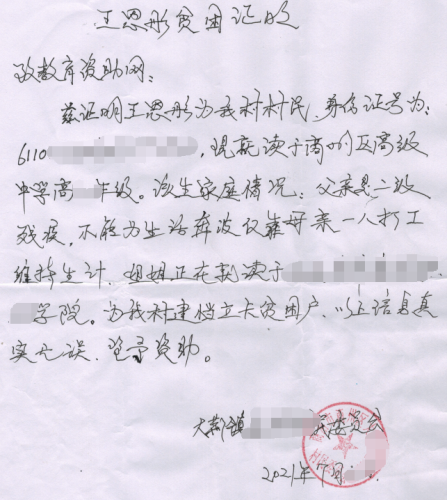 王恩彤贫困证明
致教育资助网：
兹证明王恩彤为我村村民，身份证号为：
6110，现就读于商州区高级
中学高年级。该生家庭情况：父亲患二级
残疾，不能为生活奔波仅靠母亲一人打工
维持生计，姐姐正在就读于
学院。为我村建档立卡贫困户，以上信息真
实无误，望予资助。
大荆镇民委员会
2021年7月